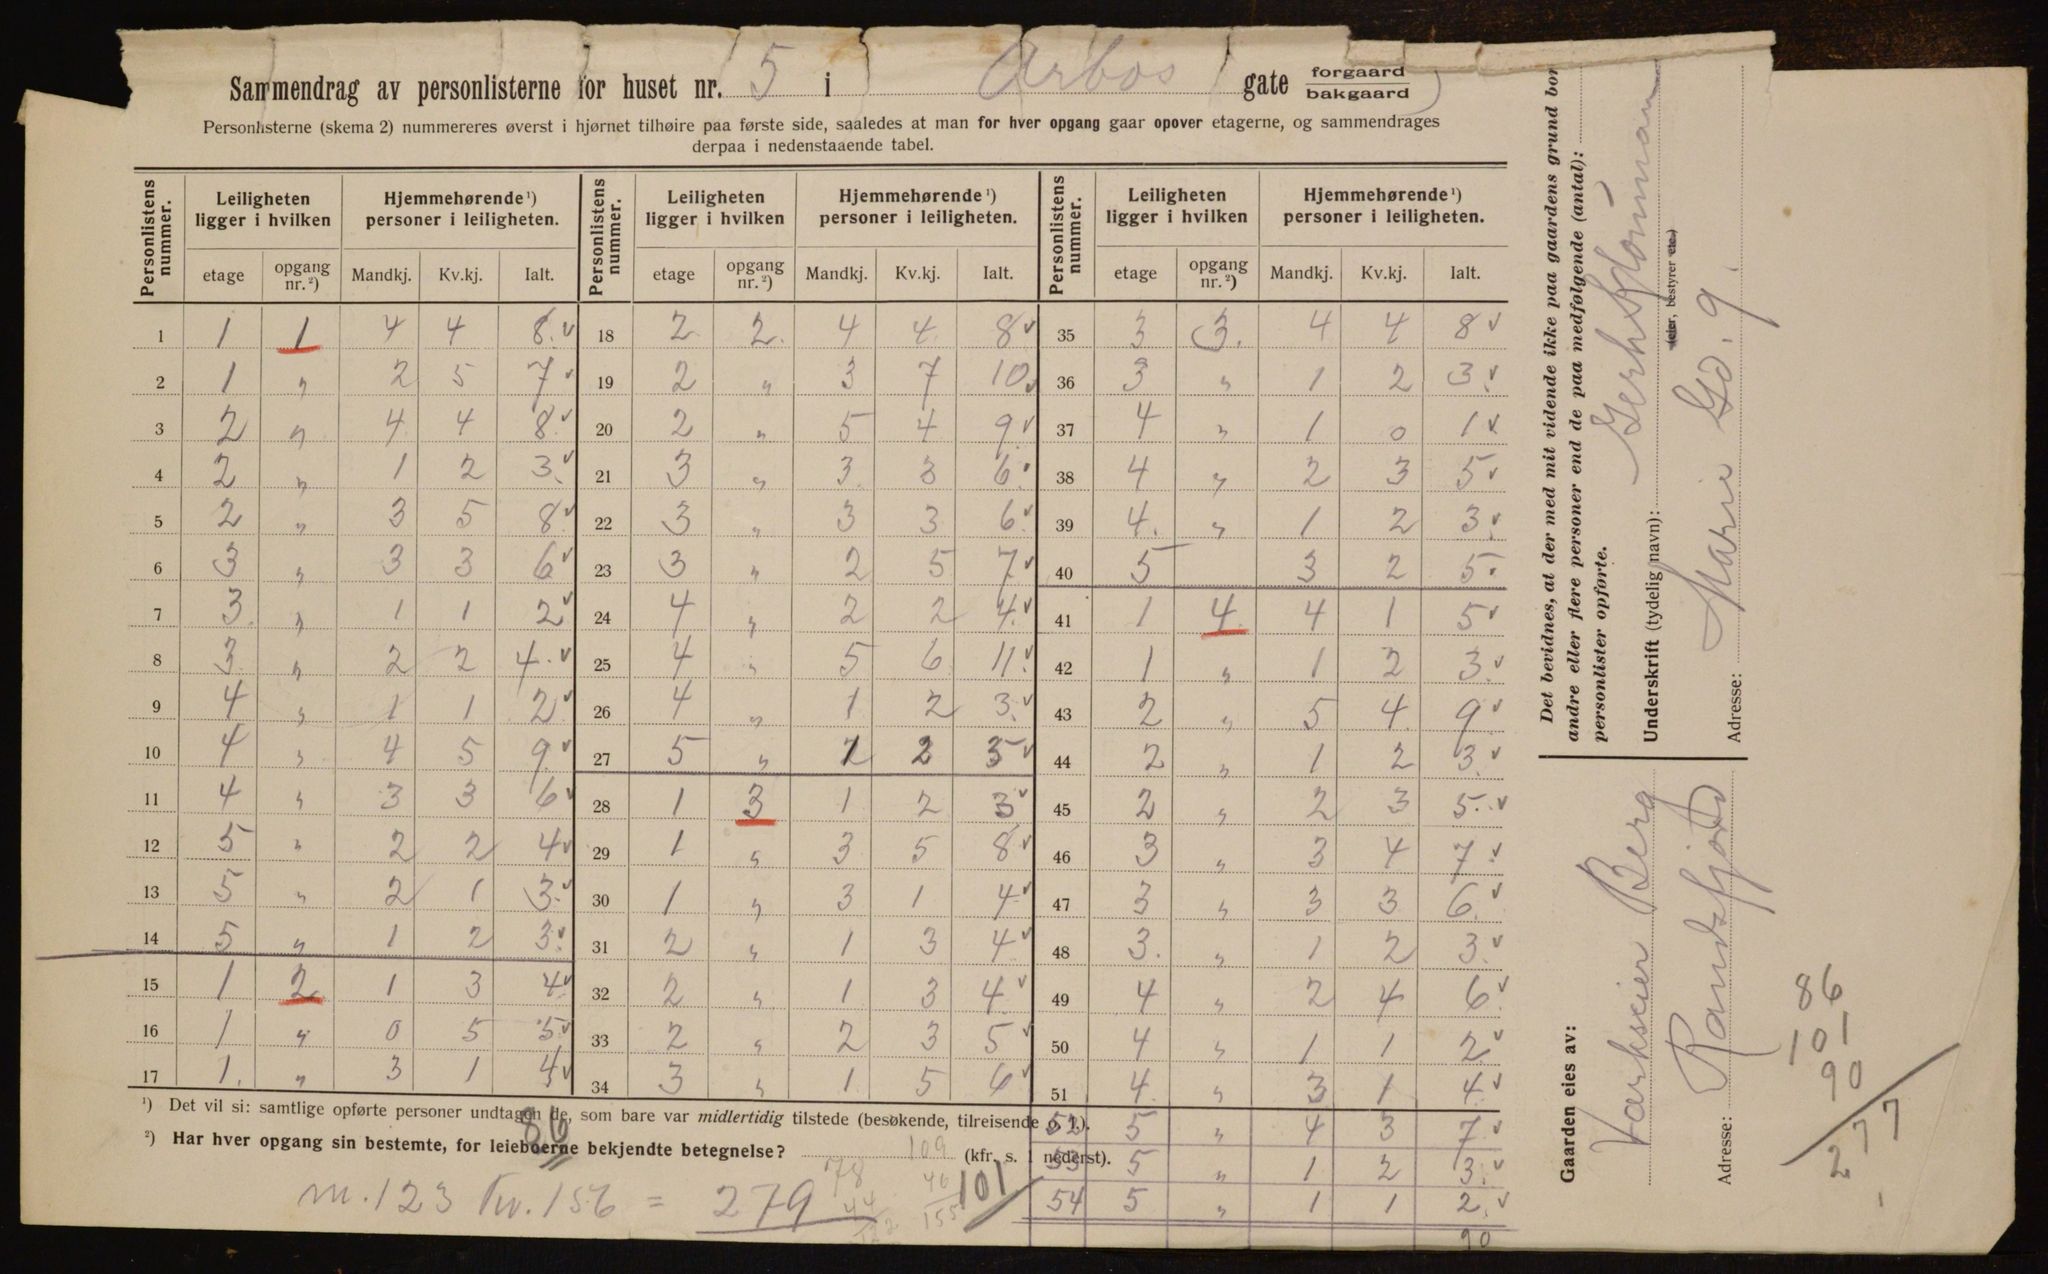 Sammendrag av personlisterne for huset nr. 5 i Arbos gate forgaard
bakgaard
Personlisterne (skema 2) nummereres øverst i hjørnet tilhøire paa første side, saaledes at man for hver opgang gaar opover etagerne, og sammendrages
derpaa i nedenstaaende tabel.
Personlistens nummer. Leiligheten ligger i hvilken Hjemmehørende ¹) personer i leiligheten. Personlistens nummer. Leiligheten ligger i hvilken Hjemmehørende ¹) personer i leiligheten. Personlistens nummer. Leiligheten ligger i hvilken Hjemmehørende ¹) personer i leiligheten.
etage opgang nr. ²) Mandkj. Kv.kj. Ialt. etage opgang nr. ²) Mandkj. Kv.kj. Ialt. etage opgang nr. ²) Mandkj. Kv.kj. Ialt.
1 1 1 4 4 8. 18 2 2. 4 4 8 35 3 3. 4 4 8
2 1 " 2 5 7 19 2 " 3 7 10 36 3 " 1 2 3.
3 2 " 4 4 8 20 2 " 5 4 9 37 4 " 1 0 1
4 2 " 1 2 3. 21 3 " 3 3 6 38 4 " 2 3 5
5 2 " 3 5 8 22 3 " 3 3 6 39 4. " 1 2 3
6 3 " 3 3 6 23 3 " 2 5 7 40 5 3 2 5
7 3. " 1 1 2 24 4 " 2 2 4 41 1 4 4 1 5
8 3 " 2 2 4. 25 4 " 5 6 11 42 1 " 1 2 3.
9 4 " 1 1 2 26 4 " 1 2 3. 43 2 " 5 4 9
10 4 " 4 5 9 27 5 " 2 3 44 2 " 1 2 3.
11 4 " 3 3 6 28 1 3 1 2 3 45 2 " 2 3 5.
12 5 " 2 2 4 29 1 " 3 5 8 46 3 " 3 4 7
13 5 " 2 1 3. 30 1 " 3 1 4 47 3 " 3 3 6
14 5 " 1 2 3. 31 2 " 1 3 4 48 3. " 1 2 3.
15 1 2 1 3 4 32 2 " 1 3 4 49 4 " 2 4 6
16 1 " 0 5 5 33 2 " 2 3 5 50 4 " 1 1 2
17 1. " 3 1 4 34 3 " 1 5 6 51 4 " 3 1 4
¹) Det vil si: samtlige opførte personer undtagen de, som bare var midlertidig tilstede (besøkende, tilreisende o. l.).
52 5 " 4 3 7
²) Har hver opgang sin bestemte, for leieboerne bekjendte betegnelse? (kfr. s. 1 nederst).
53 5 " 1 2 3.
54 5 " 1 1 2.
86
109
78
44
46
155
101
90
m. 123 Kv. 156 = 279
Det bevidnes, at der med mit vidende ikke paa gaardens grund bor
andre eller flere personer end de paa medfølgende (antal):
personlister opførte.
Underskrift (tydelig navn):
(eier, bestyrer etc.)
Adresse: Marie Gd. 9.
Gaarden eies av: Berg
Adresse: Randsfjord
86
101
90
277